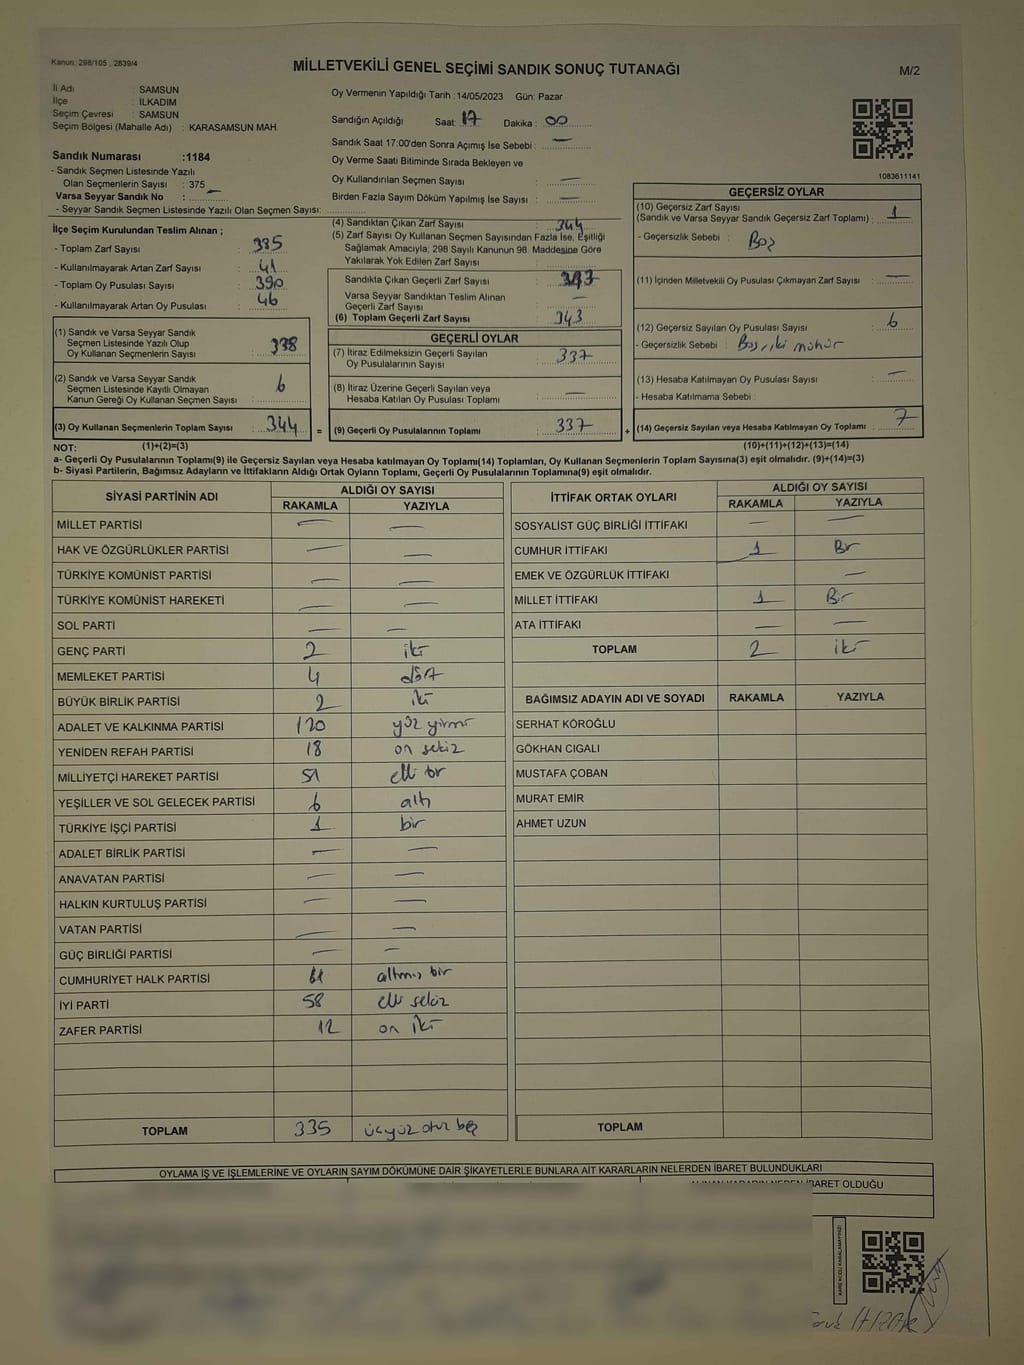 Kanun: 298/105 , 2839/4
MİLLETVEKİLİ GENEL SEÇİMİ SANDIK SONUÇ TUTANAĞI
M/2
İl Adı : SAMSUN
İlçe : İLKADIM
Seçim Çevresi : SAMSUN
Seçim Bölgesi (Mahalle Adı) : KARASAMSUN MAH.
Sandık Numarası :1184
- Sandık Seçmen Listesinde Yazılı
Olan Seçmenlerin Sayısı : 375
Varsa Seyyar Sandık No : —
- Seyyar Sandık Seçmen Listesinde Yazılı Olan Seçmen Sayısı:
İlçe Seçim Kurulundan Teslim Alınan ;
- Toplam Zarf Sayısı : 385
- Kullanılmayarak Artan Zarf Sayısı : 41
- Toplam Oy Pusulası Sayısı : 390
- Kullanılmayarak Artan Oy Pusulası : 46
(1) Sandık ve Varsa Seyyar Sandık
Seçmen Listesinde Yazılı Olup
Oy Kullanan Seçmenlerin Sayısı : 338
(2) Sandık ve Varsa Seyyar Sandık
Seçmen Listesinde Kayıtlı Olmayan
Kanun Gereği Oy Kullanan Seçmen Sayısı : 6
(3) Oy Kullanan Seçmenlerin Toplam Sayısı : 344 =
Oy Vermenin Yapıldığı Tarih :14/05/2023 Gün: Pazar
Sandığın Açıldığı Saat: 17 Dakika : 00
Sandık Saat 17:00'den Sonra Açımış İse Sebebi : —
Oy Verme Saati Bitiminde Sırada Bekleyen ve
Oy Kullandırılan Seçmen Sayısı : —
Birden Fazla Sayım Döküm Yapılmış İse Sayısı : —
(4) Sandıktan Çıkan Zarf Sayısı : 344
(5) Zarf Sayısı Oy Kullanan Seçmen Sayısından Fazla İse, Eşitliği
Sağlamak Amacıyla; 298 Sayılı Kanunun 98. Maddesine Göre
Yakılarak Yok Edilen Zarf Sayısı :
Sandıkta Çıkan Geçerli Zarf Sayısı : 343
Varsa Seyyar Sandıktan Teslim Alınan
Geçerli Zarf Sayısı : —
(6) Toplam Geçerli Zarf Sayısı : 343
GEÇERLİ OYLAR
(7) İtiraz Edilmeksizin Geçerli Sayılan
Oy Pusulalarının Sayısı : 337
(8) İtiraz Üzerine Geçerli Sayılan veya
Hesaba Katılan Oy Pusulası Toplamı : —
(9) Geçerli Oy Pusulalarının Toplamı : 337 +
1083611141
GEÇERSİZ OYLAR
(10) Geçersiz Zarf Sayısı
(Sandık ve Varsa Seyyar Sandık Geçersiz Zarf Toplamı) : 1
- Geçersizlik Sebebi : Boş
(11) İçinden Milletvekili Oy Pusulası Çıkmayan Zarf Sayısı : —
(12) Geçersiz Sayılan Oy Pusulası Sayısı : 6
- Geçersizlik Sebebi : Boş, iki mühür
(13) Hesaba Katılmayan Oy Pusulası Sayısı : —
- Hesaba Katılmama Sebebi :
(14) Geçersiz Sayılan veya Hesaba Katılmayan Oy Toplamı : 7
NOT: (1)+(2)=(3) (10)+(11)+(12)+(13)=(14)
a- Geçerli Oy Pusulalarının Toplamı(9) ile Geçersiz Sayılan veya Hesaba katılmayan Oy Toplamı(14) Toplamları, Oy Kullanan Seçmenlerin Toplam Sayısına(3) eşit olmalıdır. (9)+(14)=(3)
b- Siyasi Partilerin, Bağımsız Adayların ve İttifakların Aldığı Ortak Oyların Toplamı, Geçerli Oy Pusulalarının Toplamına(9) eşit olmalıdır.
SİYASİ PARTİNİN ADI ALDIĞI OY SAYISI
RAKAMLA YAZIYLA
MİLLET PARTİSİ — —
HAK VE ÖZGÜRLÜKLER PARTİSİ — —
TÜRKİYE KOMÜNİST PARTİSİ — —
TÜRKİYE KOMÜNİST HAREKETİ — —
SOL PARTİ — —
GENÇ PARTİ 2 iki
MEMLEKET PARTİSİ 4 dört
BÜYÜK BİRLİK PARTİSİ 2 iki
ADALET VE KALKINMA PARTİSİ 120 yüz yirmi
YENİDEN REFAH PARTİSİ 18 on sekiz
MİLLİYETÇİ HAREKET PARTİSİ 51 elli bir
YEŞİLLER VE SOL GELECEK PARTİSİ 6 altı
TÜRKİYE İŞÇİ PARTİSİ 1 bir
ADALET BİRLİK PARTİSİ — —
ANAVATAN PARTİSİ — —
HALKIN KURTULUŞ PARTİSİ — —
VATAN PARTİSİ — —
GÜÇ BİRLİĞİ PARTİSİ — —
CUMHURİYET HALK PARTİSİ 61 altmış bir
İYİ PARTİ 58 elli sekiz
ZAFER PARTİSİ 12 on iki
TOPLAM 335 üçyüz otuz beş
İTTİFAK ORTAK OYLARI ALDIĞI OY SAYISI
RAKAMLA YAZIYLA
SOSYALİST GÜÇ BİRLİĞİ İTTİFAKI — —
CUMHUR İTTİFAKI 1 Bir
EMEK VE ÖZGÜRLÜK İTTİFAKI —
MİLLET İTTİFAKI 1 Bir
ATA İTTİFAKI — —
TOPLAM 2 iki
BAĞIMSIZ ADAYIN ADI VE SOYADI RAKAMLA YAZIYLA
SERHAT KÖROĞLU
GÖKHAN CIGALI
MUSTAFA ÇOBAN
MURAT EMİR
AHMET UZUN
TOPLAM
OYLAMA İŞ VE İŞLEMLERİNE VE OYLARIN SAYIM DÖKÜMÜNE DAİR ŞİKAYETLERLE BUNLARA AİT KARARLARIN NELERDEN İBARET BULUNDUKLARI
OLDUĞU